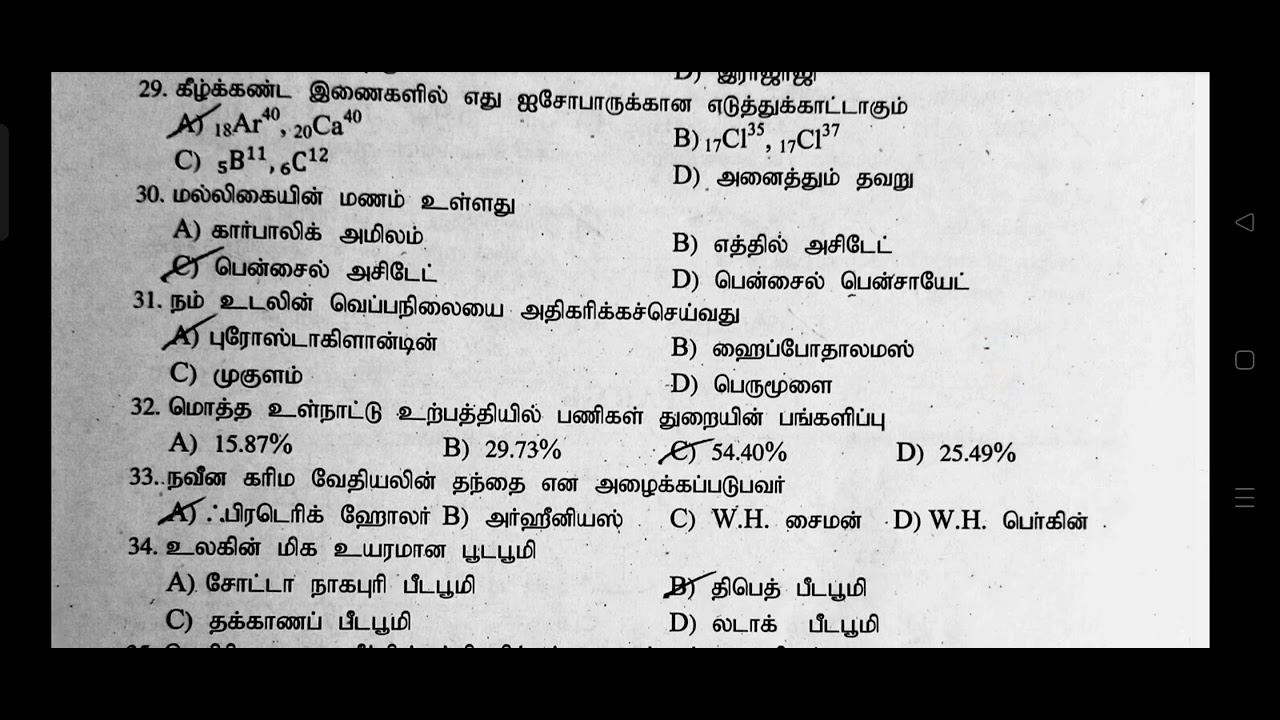 D) இராஜாஜி
29. கீழ்க்கண்ட இணைகளில் எது ஐசோபாருக்கான எடுத்துக்காட்டாகும்
A) ₁₈Ar⁴⁰, ₂₀Ca⁴⁰ B) ₁₇Cl³⁵, ₁₇Cl³⁷
C) ₅B¹¹, ₆C¹² D) அனைத்தும் தவறு
30. மல்லிகையின் மணம் உள்ளது
A) கார்பாலிக் அமிலம் B) எத்தில் அசிடேட்
C) பென்சைல் அசிடேட் D) பென்சைல் பென்சாயேட்
31. நம் உடலின் வெப்பநிலையை அதிகரிக்கச்செய்வது
A) புரோஸ்டாகிளான்டின் B) ஹைப்போதாலமஸ்
C) முகுளம் D) பெருமூளை
32. மொத்த உள்நாட்டு உற்பத்தியில் பணிகள் துறையின் பங்களிப்பு
A) 15.87% B) 29.73% C) 54.40% D) 25.49%
33. நவீன கரிம வேதியலின் தந்தை என அழைக்கப்படுபவர்
A) ஃபிரடெரிக் ஹோலர் B) அர்ஹீனியஸ் C) W.H. சைமன் D) W.H. பெர்கின்
34. உலகின் மிக உயரமான பூடபூமி
A) சோட்டா நாகபுரி பீடபூமி B) திபெத் பீடபூமி
C) தக்காணப் பீடபூமி D) லடாக் பீடபூமி